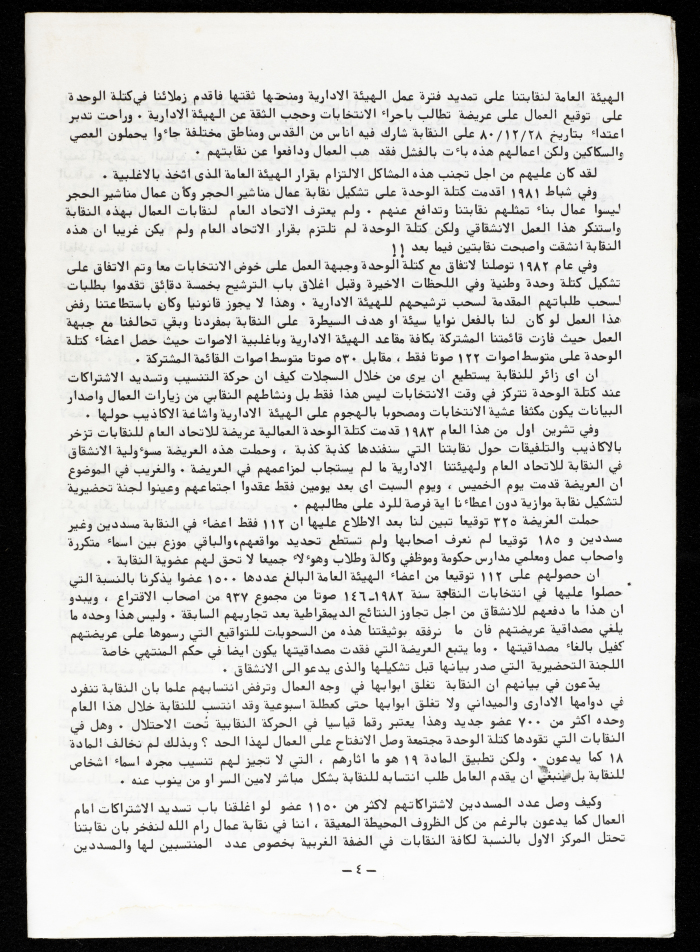 الهيئة العامة لنقابتنا على تمديد فترة عمل الهيئة الادارية ومنحتها ثقتها فاقدم زملائنا في كتلة الوحدة
على توقيع العمال على عريضة تطالب باجراء الانتخابات وحجب الثقة عن الهيئة الادارية . وراحت تدبر
اعتداء بتاريخ ٨٠/١٢/٢٨ على النقابة شارك فيه اناس من القدس ومناطق مختلفة جاءوا يحملون العصي
والسكاكين ولكن اعمالهم هذه باءت بالفشل فقد هب العمال ودافعوا عن نقابتهم .
لقد كان عليهم من اجل تجنب هذه المشاكل الالتزام بقرار الهيئة العامة الذى اتخذ بالاغلبية .
وفي شباط ١٩٨١ اقدمت كتلة الوحدة على تشكيل نقابة عمال مناشير الحجر وكان عمال مناشير الحجر
ليسوا عمال بناء تمثلهم نقابتنا وتدافع عنهم . ولم يعترف الاتحاد العام لنقابات العمال بهذه النقابة
واستنكر هذا العمل الانشقاقي ولكن كتلة الوحدة لم تلتزم بقرار الاتحاد العام ولم يكن غريبا ان هذه
النقابة انشقت واصبحت نقابتين فيما بعد !!
وفي عام ١٩٨٢ توصلنا لاتفاق مع كتلة الوحدة وجبهة العمل على خوض الانتخابات معا وتم الاتفاق على
تشكيل كتلة وحدة وطنية وفي اللحظات الاخيرة وقبل اغلاق باب الترشيح بخمسة دقائق تقدموا بطلبات
لسحب طلباتهم المقدمة لسحب ترشيحهم للهيئة الادارية . وهذا لا يجوز قانونيا وكان باستطاعتنا رفض
هذا العمل لو كان لنا بالفعل نوايا سيئة او هدف السيطرة على النقابة بمفردنا وبقي تحالفنا مع جبهة
العمل حيث فازت قائمتنا المشتركة بكافة مقاعد الهيئة الادارية وباغلبية الاصوات حيث حصل اعضاء كتلة
الوحدة على متوسط اصوات ١٢٢ صوتا فقط ، مقابل ٥٣٠ صوتا متوسط اصوات القائمة المشتركة .
ان اى زائر للنقابة يستطيع ان يرى من خلال السجلات كيف ان حركة التنسيب وتسديد الاشتراكات
عند كتلة الوحدة تتركز في وقت الانتخابات ليس هذا فقط بل ونشاطهم النقابي من زيارات العمال واصدار
البيانات يكون مكثفا عشية الانتخابات ومصحوبا بالهجوم على الهيئة الادارية واشاعة الاكاذيب حولها .
وفي تشرين اول من هذا العام ١٩٨٣ قدمت كتلة الوحدة العمالية عريضة للاتحاد العام للنقابات تزخر
بالاكاذيب والتلفيقات حول نقابتنا التي سنفندها كذبة كذبة ، وحملت هذه العريضة مسؤولية الانشقاق
في النقابة للاتحاد العام ولهيئتنا الادارية ما لم يستجاب لمزاعمهم في العريضة . والغريب في الموضوع
ان العريضة قدمت يوم الخميس ، ويوم السبت اى بعد يومين فقط عقدوا اجتماعهم وعينوا لجنة تحضيرية
لتشكيل نقابة موازية دون اعطاءنا اية فرصة للرد على مطالبهم .
حملت العريضة ٣٢٥ توقيعا تبين لنا بعد الاطلاع عليها ان ١١٢ فقط اعضاء في النقابة مسددين وغير
مسددين و ١٨٥ توقيعا لم نعرف اصحابها ولم نستطع تحديد مواقعهم،والباقي موزع بين اسماء متكررة
واصحاب عمل ومعلمي مدارس حكومة وموظفي وكالة وطلاب وهؤلاء جميعا لا تحق لهم عضوية النقابة .
ان حصولهم على ١١٢ توقيعا من اعضاء الهيئة العامة البالغ عددها ١٥٠٠ عضوا يذكرنا بالنسبة التي
حصلوا عليها في انتخابات النقابة سنة ١٩٨٢ـ١٤٦ صوتا من مجموع ٩٣٧ من اصحاب الاقتراع ، ويبدو
ان هذا ما دفعهم للانشقاق من اجل تجاوز النتائج الديمقراطية بعد تجاربهم السابقة . وليس هذا وحده ما
يلغي مصداقية عريضتهم فان ما نرفقه بوثيقتنا هذه من السحوبات للتواقيع التي رسموها على عريضتهم
كفيل بالغاء مصداقيتها . وما يتبع العريضة التي فقدت مصداقيتها يكون ايضا في حكم المنتهي خاصة
اللجنة التحضيرية التي صدر بيانها قبل تشكيلها والذى يدعو الى الانشقاق .
يدّعون في بيانهم ان النقابة تغلق ابوابها في وجه العمال وترفض انتسابهم علما بان النقابة تنفرد
في دوامها الادارى والميداني ولا تغلق ابوابها حتى كعطلة اسبوعية وقد انتسب للنقابة خلال هذا العام
وحده اكثر من ٧٠٠ عضو جديد وهذا يعتبر رقما قياسيا في الحركة النقابية تحت الاحتلال . وهل في
النقابات التي تقودها كتلة الوحدة مجتمعة وصل الانفتاح على العمال لهذا الحد ؟ وبذلك لم نخالف المادة
١٨ كما يدعون . ولكن تطبيق المادة ١٩ هو ما اثارهم ، التي لا تجيز لهم تنسيب مجرد اسماء اشخاص
للنقابة بل ينبغي ان يقدم العامل طلب انتسابه للنقابة بشكل مباشر لامين السر او من ينوب عنه .
وكيف وصل عدد المسددين لاشتراكاتهم لاكثر من ١١٥٠ عضو لو اغلقنا باب تسديد الاشتراكات امام
العمال كما يدعون بالرغم من كل الظروف المحيطة المعيقة ، اننا في نقابة عمال رام الله لنفخر بان نقابتنا
تحتل المركز الاول بالنسبة لكافة النقابات في الضفة الغربية بخصوص عدد المنتسبين لها والمسددين
— ٤ —